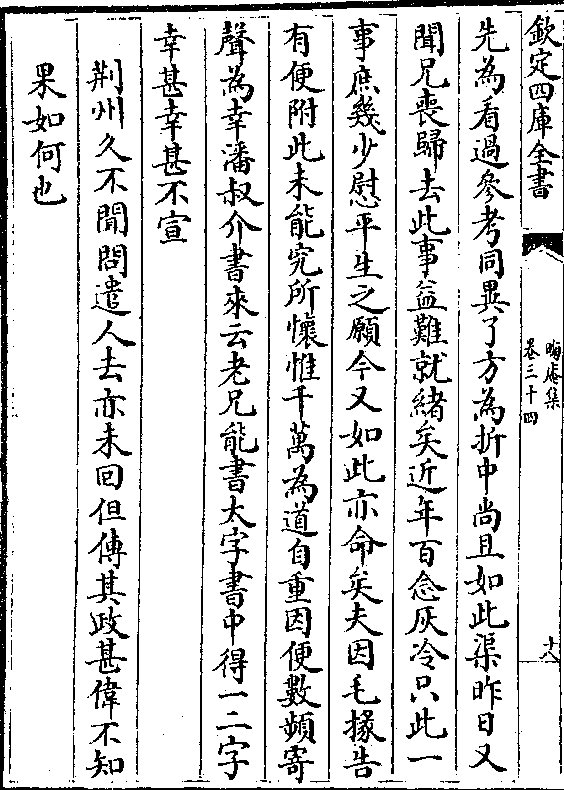 欽定四庫全書
晦庵集
卷三十四
十八
先為看過參考同異了方為折中尚且如此渠昨日又
聞兄喪歸去此事益難就緒矣近年百念灰冷只此一
事庶幾少慰平生之願今又如此亦命矣夫因毛掾告
有便附此未能究所懷惟千萬為道自重因便數頻寄
聲為幸潘叔介書來云老兄能書大字書中得一二字
幸甚幸甚不宣
荆州久不聞問遣人去亦未回但傳其政甚偉不知
果如何也